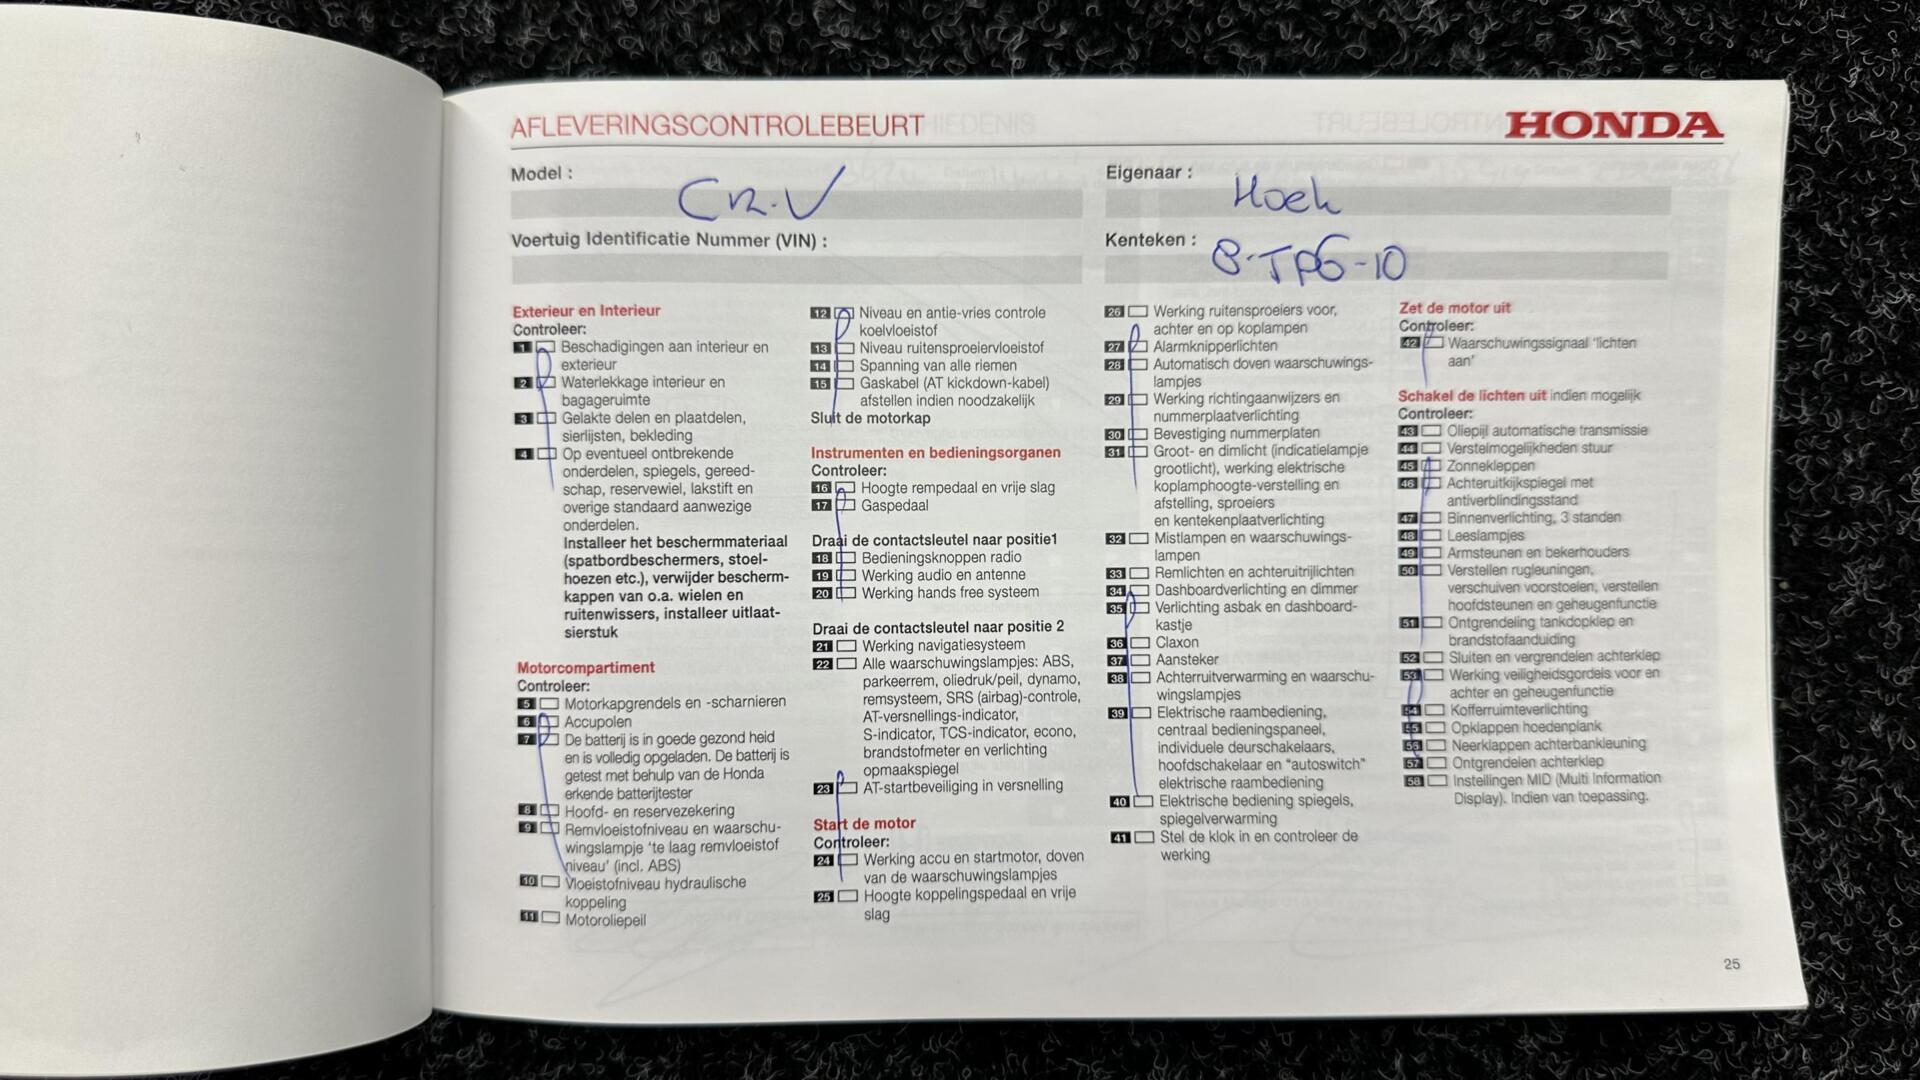 AFLEVERINGSCONTROLEBEURT
HONDA
Model :
CR-V
Voertuig Identificatie Nummer (VIN) :
Eigenaar :
Hoek
Kenteken :
8-TPG-10
Exterieur en Interieur
Controleer:
1 Beschadigingen aan interieur en
exterieur
2 Waterlekkage interieur en
bagageruimte
3 Gelakte delen en plaatdelen,
sierlijsten, bekleding
4 Op eventueel ontbrekende
onderdelen, spiegels, gereed-
schap, reservewiel, lakstift en
overige standaard aanwezige
onderdelen.
Installeer het beschermmateriaal
(spatbordbeschermers, stoel-
hoezen etc.), verwijder bescherm-
kappen van o.a. wielen en
ruitenwissers, installeer uitlaat-
sierstuk
Motorcompartiment
Controleer:
5 Motorkapgrendels en -scharnieren
6 Accupolen
7 De batterij is in goede gezond heid
en is volledig opgeladen. De batterij is
getest met behulp van de Honda
erkende batterijtester
8 Hoofd- en reservezekering
9 Remvloeistofniveau en waarschu-
wingslampje 'te laag remvloeistof
niveau' (incl. ABS)
10 Vloeistofniveau hydraulische
koppeling
11 Motoroliepeil
12 Niveau en antie-vries controle
koelvloeistof
13 Niveau ruitensproeiervloeistof
14 Spanning van alle riemen
15 Gaskabel (AT kickdown-kabel)
afstellen indien noodzakelijk
Sluit de motorkap
Instrumenten en bedieningsorganen
Controleer:
16 Hoogte rempedaal en vrije slag
17 Gaspedaal
Draai de contactsleutel naar positie1
18 Bedieningsknoppen radio
19 Werking audio en antenne
20 Werking hands free systeem
Draai de contactsleutel naar positie 2
21 Werking navigatiesysteem
22 Alle waarschuwingslampjes: ABS,
parkeerrem, oliedruk/peil, dynamo,
remsysteem, SRS (airbag)-controle,
AT-versnellings-indicator,
S-indicator, TCS-indicator, econo,
brandstofmeter en verlichting
opmaakspiegel
23 AT-startbeveiliging in versnelling
Start de motor
Controleer:
24 Werking accu en startmotor, doven
van de waarschuwingslampjes
25 Hoogte koppelingspedaal en vrije
slag
26 Werking ruitensproeiers voor,
achter en op koplampen
27 Alarmknipperlichten
28 Automatisch doven waarschuwings-
lampjes
29 Werking richtingaanwijzers en
nummerplaatverlichting
30 Bevestiging nummerplaten
31 Groot- en dimlicht (indicatielampje
grootlicht), werking elektrische
koplamphoogte-verstelling en
afstelling, sproeiers
en kentekenplaatverlichting
32 Mistlampen en waarschuwings-
lampen
33 Remlichten en achteruitrijlichten
34 Dashboardverlichting en dimmer
35 Verlichting asbak en dashboard-
kastje
36 Claxon
37 Aansteker
38 Achterruitverwarming en waarschu-
wingslampjes
39 Elektrische raambediening,
centraal bedieningspaneel,
individuele deurschakelaars,
hoofdschakelaar en "autoswitch"
elektrische raambediening
40 Elektrische bediening spiegels,
spiegelverwarming
41 Stel de klok in en controleer de
werking
Zet de motor uit
Controleer:
42 Waarschuwingssignaal 'lichten
aan'
Schakel de lichten uit indien mogelijk
Controleer:
43 Oliepijl automatische transmissie
44 Verstelmogelijkheden stuur
45 Zonnekleppen
46 Achteruitkijkspiegel met
antiverblindingsstand
47 Binnenverlichting, 3 standen
48 Leeslampjes
49 Armsteunen en bekerhouders
50 Verstellen rugleuningen,
verschuiven voorstoelen, verstellen
hoofdsteunen en geheugenfunctie
51 Ontgrendeling tankdopklep en
brandstofaanduiding
52 Sluiten en vergrendelen achterklep
53 Werking veiligheidsgordels voor en
achter en geheugenfunctie
54 Kofferruimteverlichting
55 Opklappen hoedenplank
56 Neerklappen achterbankleuning
57 Ontgrendelen achterklep
58 Instellingen MID (Multi Information
Display). Indien van toepassing.
25